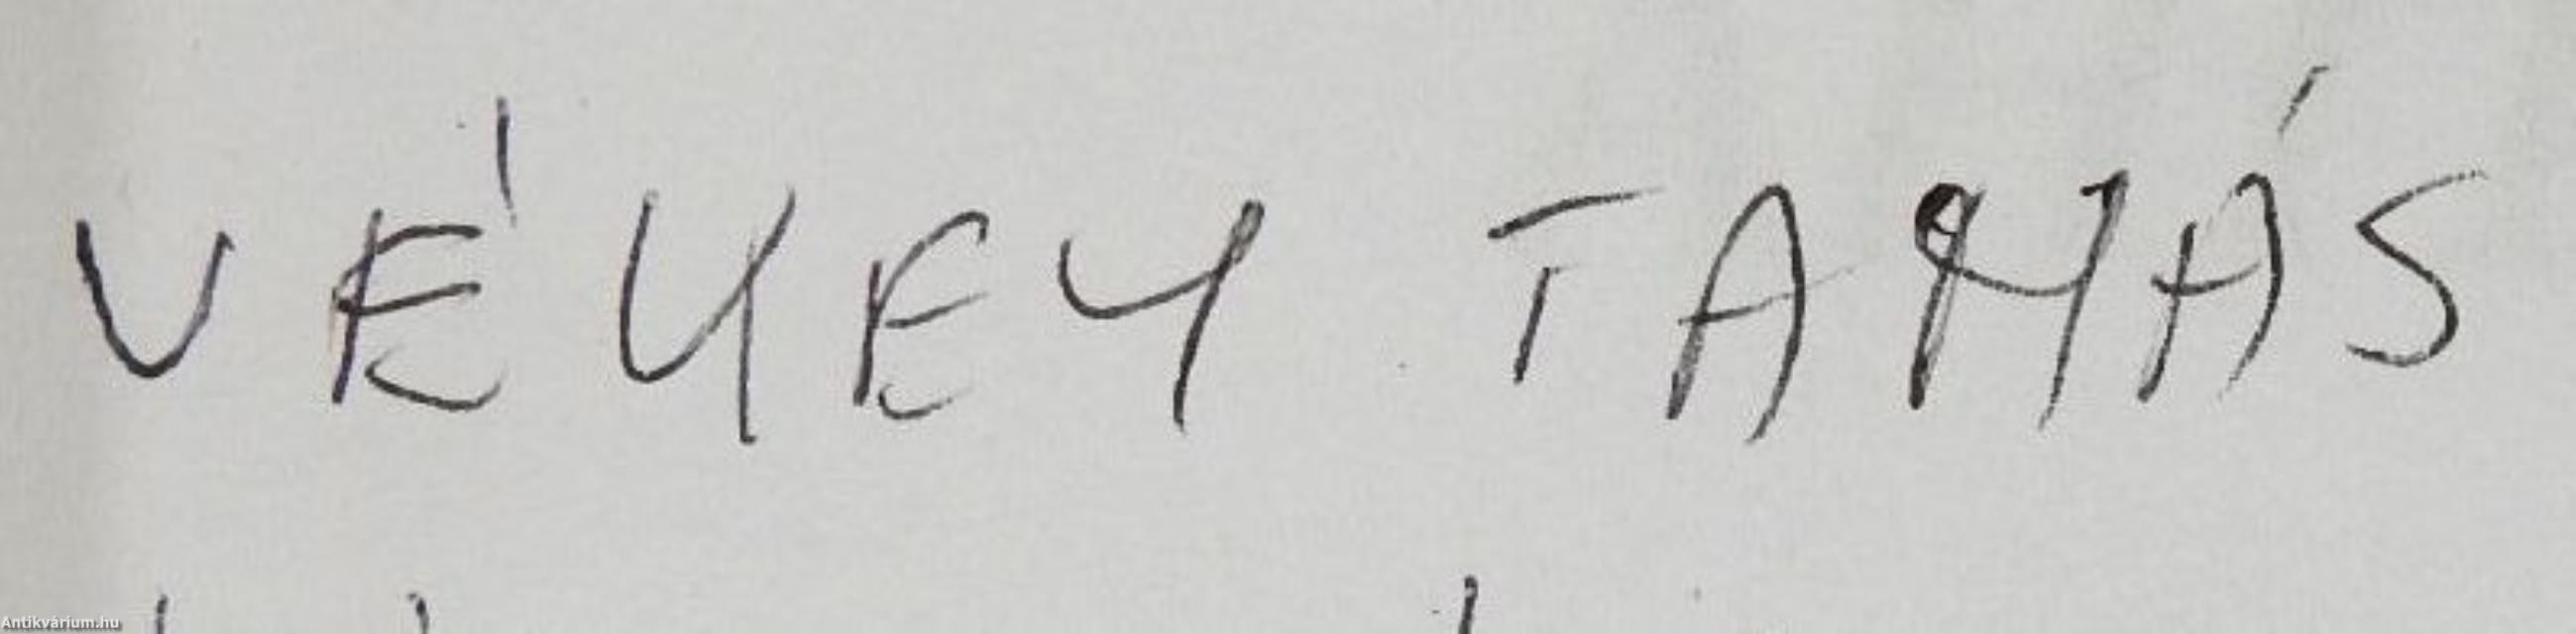 VÉKEY TAMÁS
Antikvárium.hu